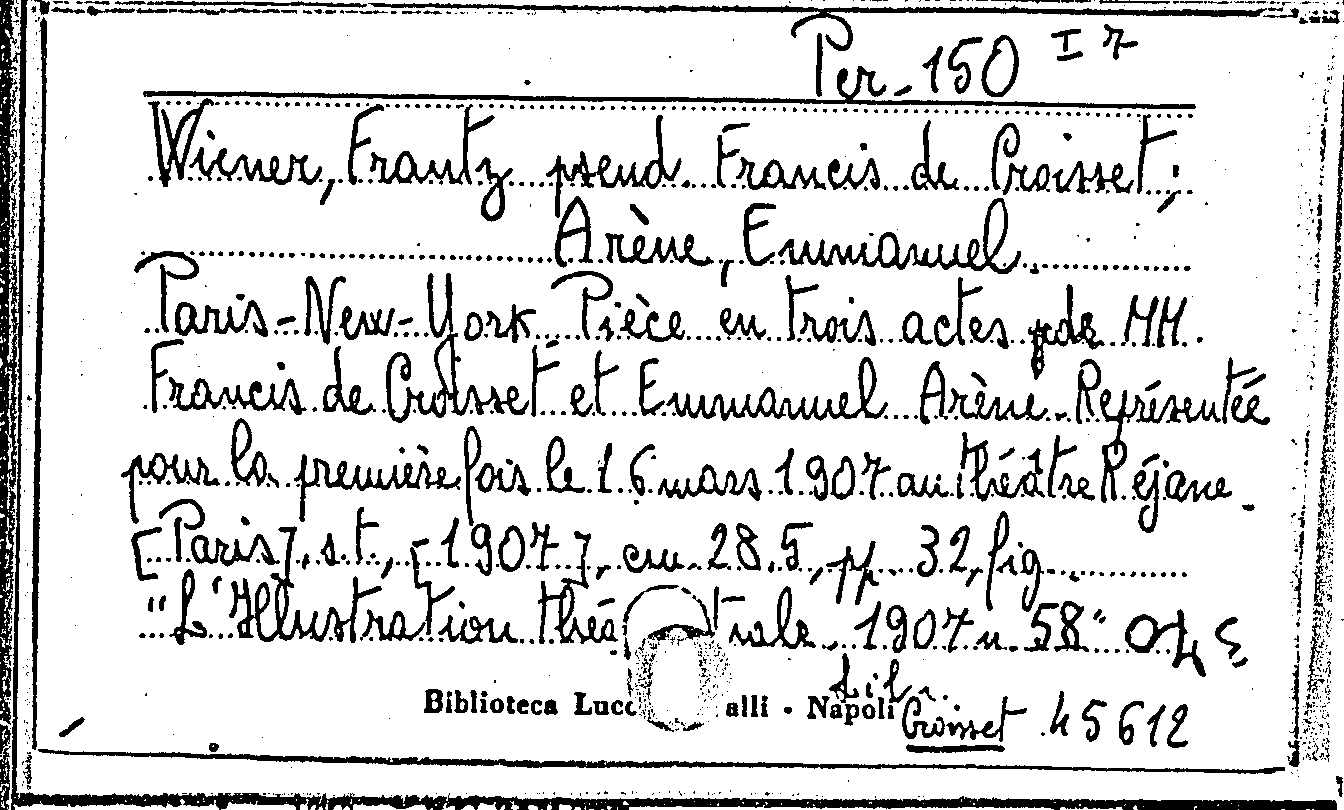 Per. 150 I 7
Wiener, Frantz pseud. Francis de Croisset;
Arène, Emmanuel.
Paris-New-York Pièce en trois actes de MM.
Francis de Croisset et Emmanuel Arène. Représentée
pour la première fois le 16 mars 1907 au théâtre Réjane.
[Paris], s.t., [1907], cm. 28.5, pp. 32, fig.
"L'Illustration théâ trale 1907 n. 58"
Biblioteca Lucc alli - Napoli
Croisset 45612